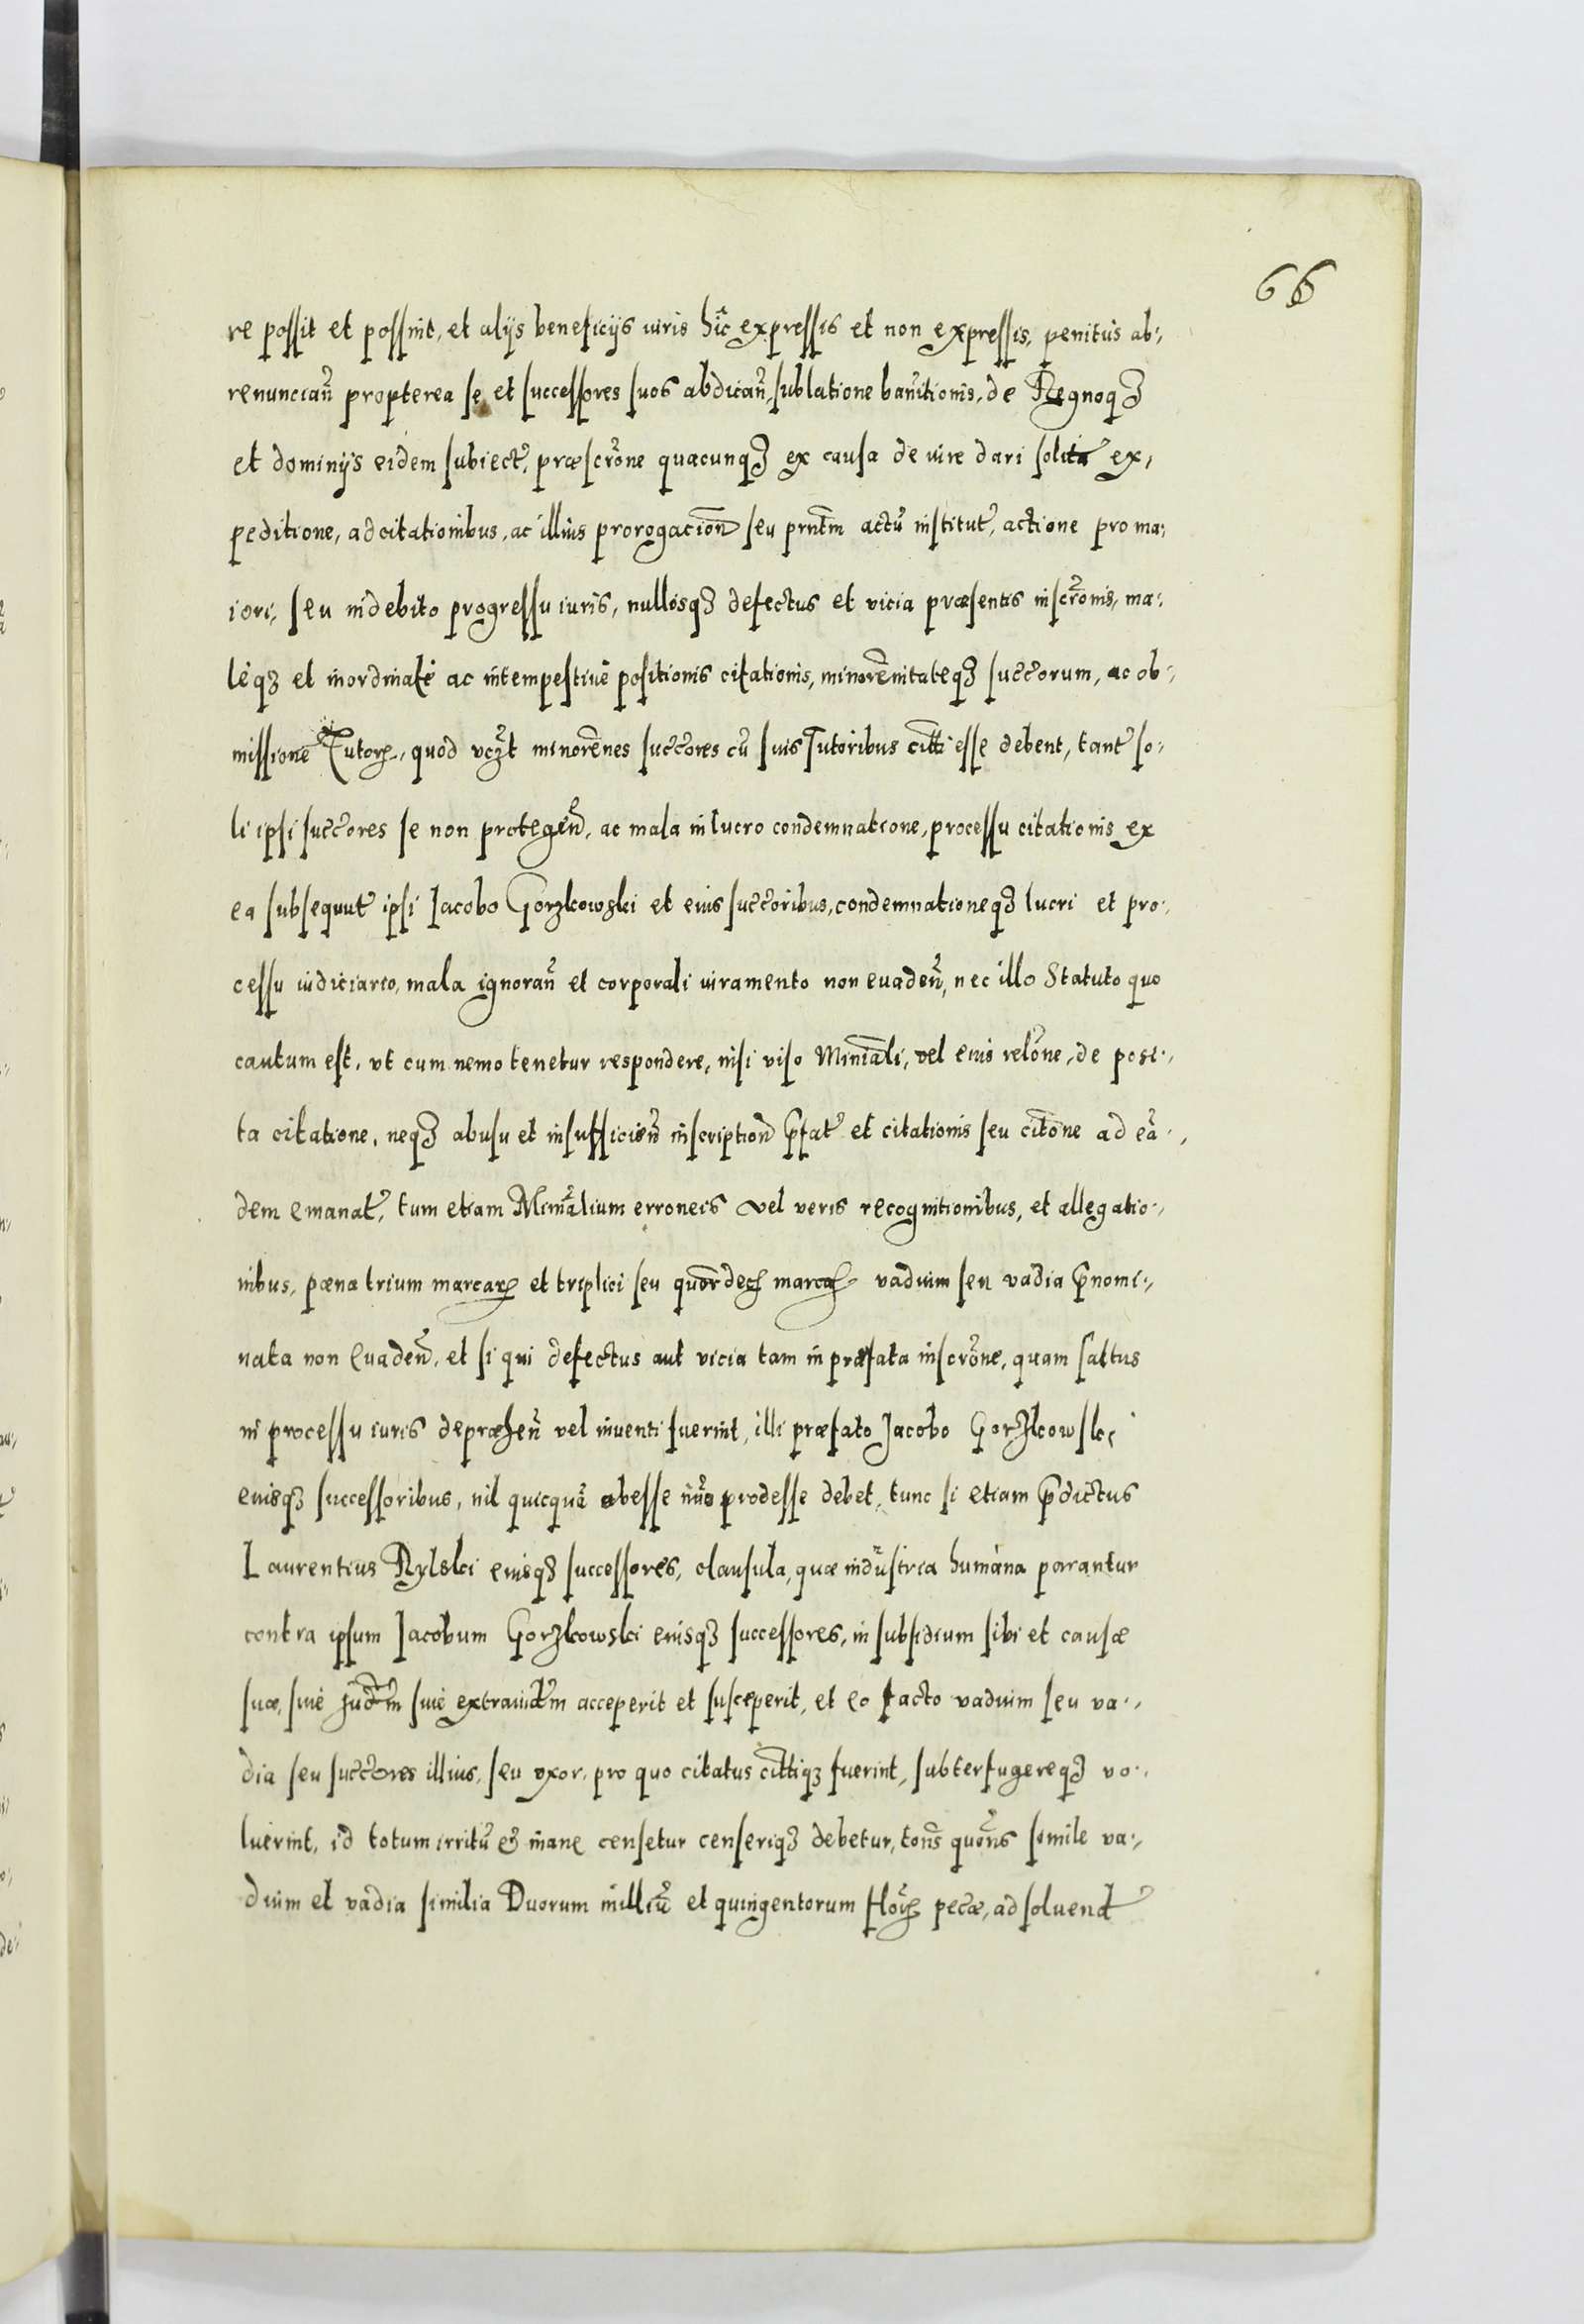 66
re possit et possint, et alijs beneficijs iuris hic expressis et non expressis, penitus ab-,
renuncian̄ propterea se et successores suos abdican̄, sublatione bannitionis, de Regnoq₃
et dominijs eidem subiect̄, præscr̄one quacunq₃ ex causa de iure dari solita ex,
peditione, adcitationibus, ac illius prorogacion̄ seu pr̄ntm actū institut̄, actione pro ma:
iori, seu indebito progressu iuris, nullosq₃ defectus et vicia præsentis inscr̄onis, ma:,
leq₃ et inordinate ac intempestiue positionis citationis, minorēnitateq₃ succ̄orum, ac ob-,
missione Tutor₄, quod vcz̄t minorēnes succ̄ores cū suis Tutoribus citt̄i esse debent, tant̄ so-,
li ipsi succ̄ores se non protegen̄d, ac mala in lucro condemnatione, processu citationis ex
ea subsequut̄ ipsi Jacobo Gorzkowski et eius succ̄oribus, condemnationeq₃ lucri et pro-,
cessu iudiciario, mala ignoran̄ et corporali iuramento non euaden̄, nec illo Statuto quo
cautum est, vt cum nemo tenetur respondere, nisi viso Miniāli, vel eius relōne, de posi-,
ta citatione, neq₃ abusu et insufficien̄ inscription̄ p̄fat̄ et citationis seu citōne ad eā-,
dem emanat̄, tum etiam Miniālium erroneis vel veris recognitionibus, et allegatio-,
nibus, pœna trium marcar₄ et triplici seu quor̄dec₄ marcar₄ vadium seu vadia p̄nomi-,
nata non Euaden̄d, et si qui defectus aut vicia tam in præfata inscr̄one, quam saltus
in processu iuris depræhen̄ vel inuenti fuerint, illi præfato Jacobo Gorzkowski
eiusq₃ successoribus, nil quicquā obesse imo prodesse debet, tunc si etiam p̄dictus
Laurentius Rylski eiusq₃ successores, clausula, quæ industria humana parantur
contra ipsum Jacobum Gorzkowski eiusq₃ successores, in subsidium sibi et causæ
suæ, siue Jud̄m siue extraiud̄m acceperit et susceperit, et eo facto vadium seu va-,
dia seu succ̄ores illius, seu vxor, pro quo citatus citt̄iq₃ fuerint, subterfugereq₃ vo-,
luerint, id totum irritū & inane censetur censeriq₃ debetur, ton̄s quon̄s simile va-,
dium et vadia similia Duorum milliū et quingentorum Flōr₄ pecæ, ad soluend̄